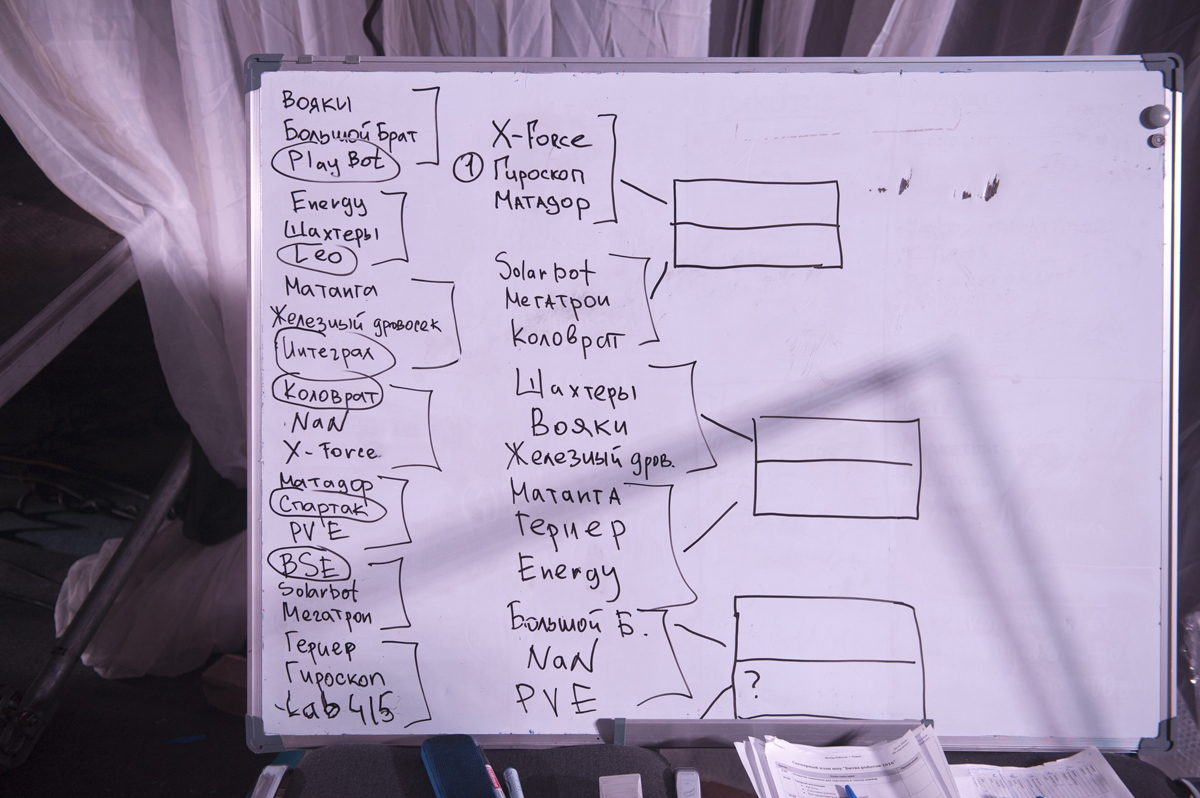 Вояки
Большой Брат
Play Bot
Energy
Шахтеры
Leo
Матанга
Железный дровосек
Интеграл
Коловрат
NaN
X-Force
Матадор
Спартак
PVE
BSE
Solarbot
Мегатрон
Гернер
Гироскоп
Lab 415
X-Force
1 Гироскоп
Матадор
Solarbot
Мегатрон
Коловрат
Шахтеры
Вояки
Железный дров.
Матанга
Гернер
Energy
Большой Б.
NaN
PVE
?
Сценарный план шоу "Битва роботов 2016"